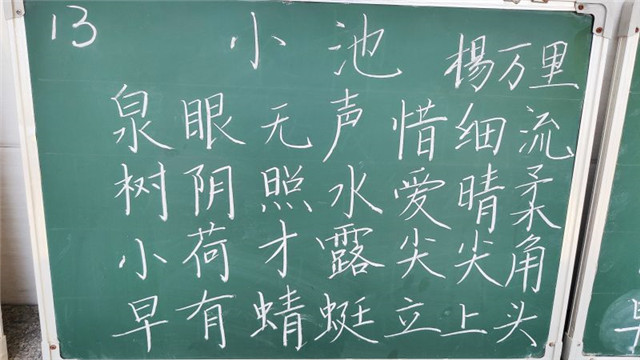 13 小池 楊万里
泉眼无声惜细流
树阴照水爱晴柔
小荷才露尖尖角
早有蜻蜓立上头